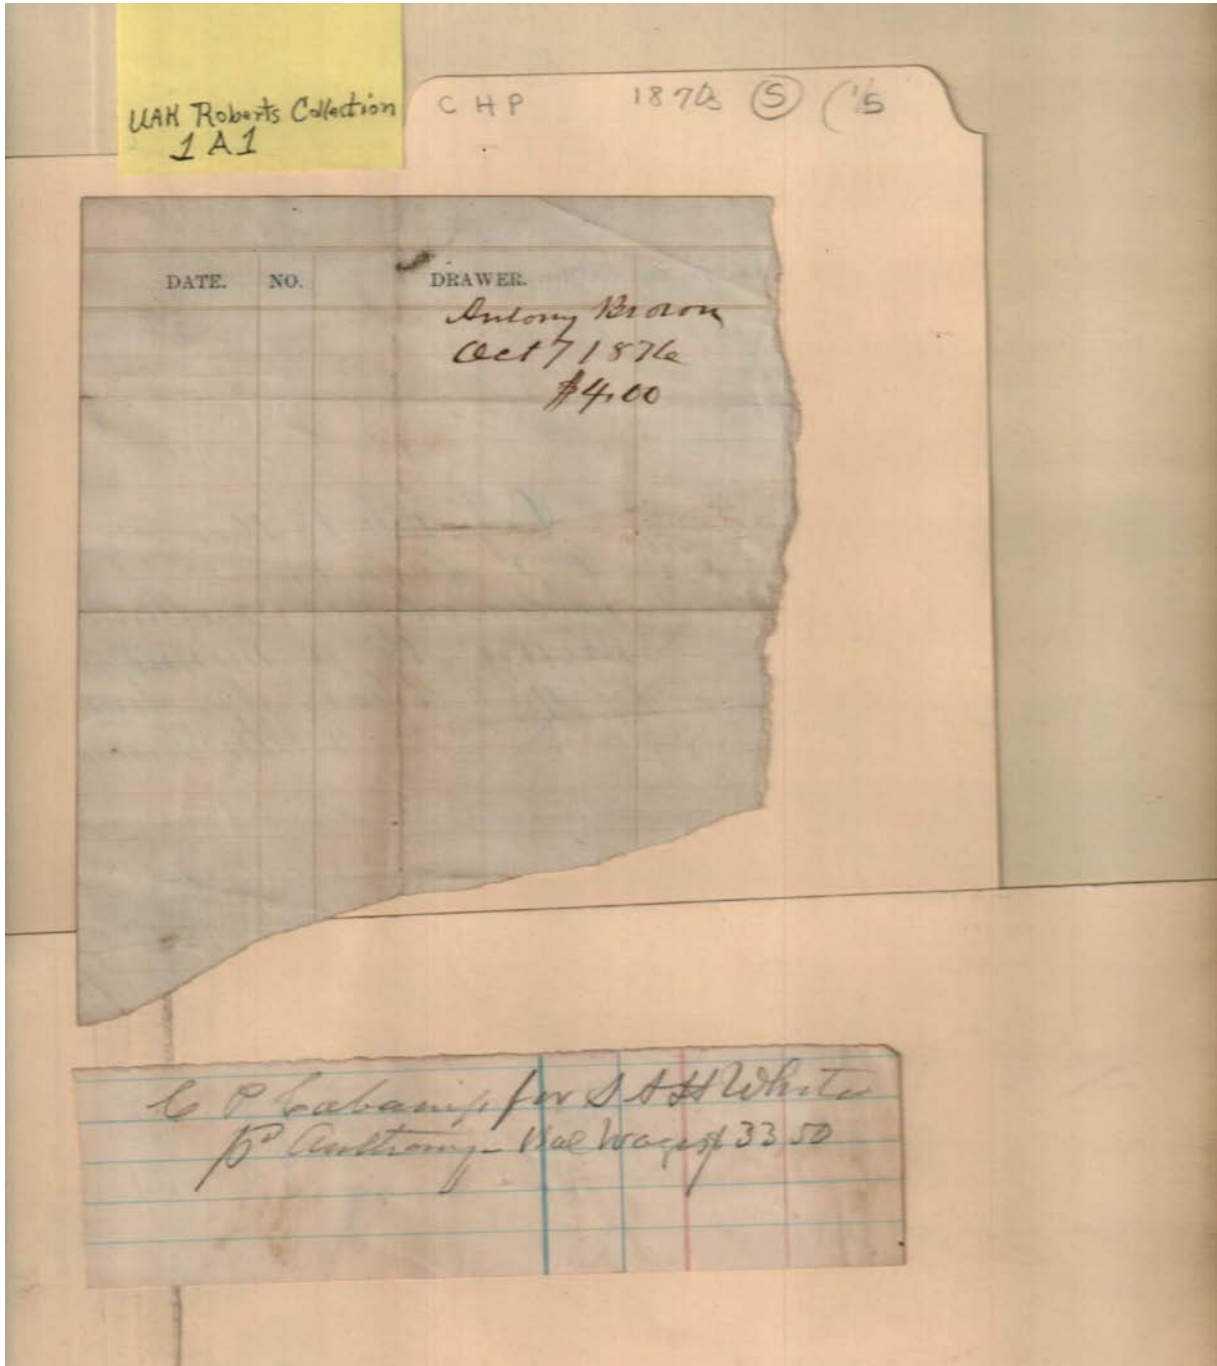 UAH Roberts Collection
1 A 1
C H P 1870s S ('S
DATE. NO. DRAWER.
Antony Brown
Oct 7 1876
$4.00
C P Cabaniss for S A H White
Anthony - Bal Wages $33.50